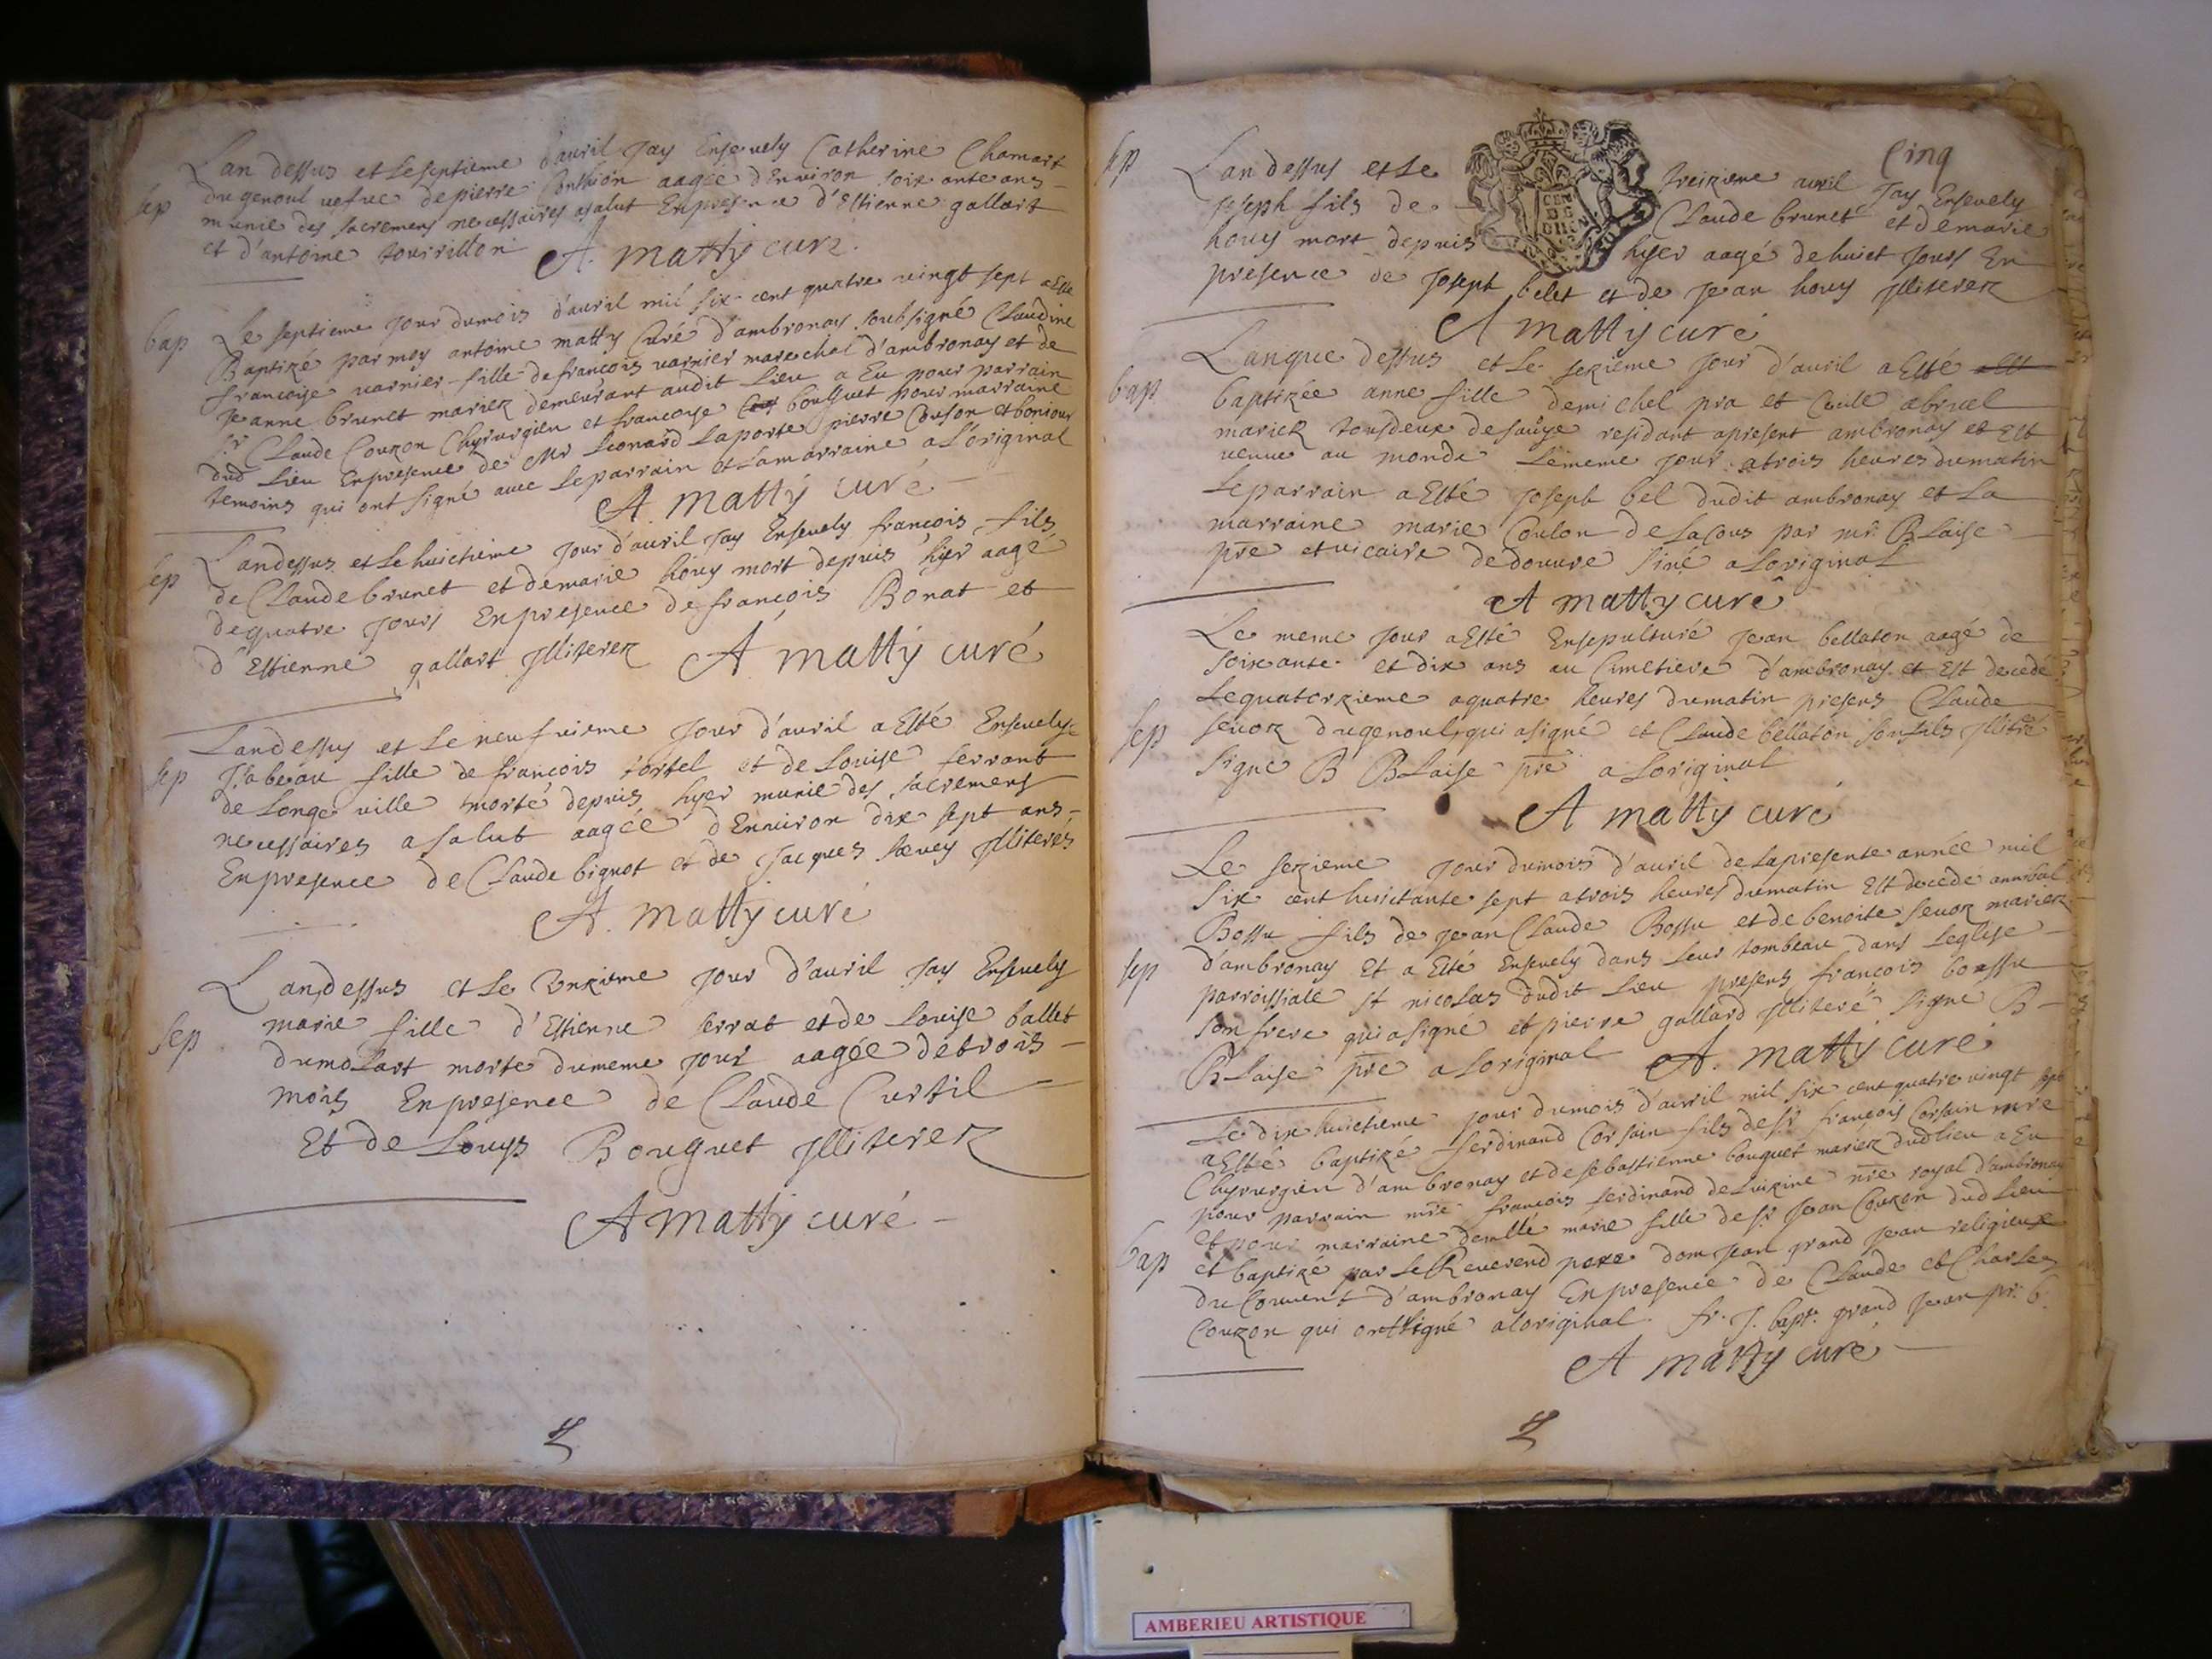 Lan dessus et Le septieme d'auril Jay Enseuely Catherine Chamart
sep
du genoul vefue de pierre aagée d'Enuiron soixante ans
munie des sacremens necessaires a salut En presence d'Estienne gallart
et d'antoine tourrillon
A. matty curé.
bap
Le septieme Jour du mois d'auril mil six cent quatre vingt sept a Esté
Baptizé par moy antoine matty Curé d'ambronay soubsigné Claudine
francoise varnier fille de francois varnier marechal d'ambronay et de
Jeanne brunet mariez demeurant audit Lieu a Eu pour parrain
Sr Claude Couzon Chyrurgien et francoyse bousquet pour marraine
dud Lieu En presence de Mr Leonard Laporte pierre Cuson et
temoins qui ont signé auec Le parrain et La marraine a L'original
A. matty curé
sep
Lan dessus et Le huictieme Jour d'auril Jay Enseuely francois fils
de Claude brunet et de marie houy mort depuis hyer aagé
de quatre Jours En presence de francois Bonat et
d'Estienne gallart Jlliterez A matty curé
Lan dessus et Le neufuieme Jour d'auril a Esté Enseuelye
sep
Jsabeau fille de francois tortel et de Louise ferrant
de Longeville morte depuis hyer munie des sacremens
necessaires a salut aagée d'Enuiron dix sept ans
En presence de Claude bignot et de Jacques Jlliterez
A. matty curé
Lan dessus et Le Vnzieme Jour d'auril Jay Enseuely
sep
marie fille d'Estienne serrat et de Louise ballet
du molart morte du meme Jour aagée de trois
mois En presence de Claude Curtil
Et de Louys Bouguet Jlliterez
A matty curé
Cinq
sep
Lan dessus et Le treizieme auril Jay Enseuely
Joseph fils de Claude brunet et de marie
houy mort depuis hyer aagé de huict Jours En
presence de Joseph belet et de Jean houy Jlliterez
A matty curé
bap
Lan que dessus et Le sezieme Jour d'auril a Esté
baptizée anne fille de michel pra et abruel
mariez tous deux de residant apresent ambronay et Est
venue au monde Le meme Jour a trois heures du matin
Le parrain a Esté Joseph bel dudit ambronay et La
marraine marie Coulon de La Cous par mr. BLaise
pre et vicaire de douure siné a Loriginal
A matty curé
Le meme Jour a Esté Ensepulturé Jean bellaton aagé de
soixante et dix ans au Cimetiere d'ambronay et Est decedé
Le quatorzieme a quatre heures du matin presens Claude
sep
seuoz du genoul qui a signé et Claude bellaton son fils Jllitré
signé B BLaise pre a Loriginal
A matty curé
Le sezieme Jour du mois d'auril de La presente année mil
six cent huictante sept a trois heures du matin Est decede annibal
Bossu fils de Jean Claude Bossu et de benoite seuoz mariez
sep
d'ambronay Et a Esté Enseuely dans Leur tombeau dans Leglise
parroissialle st nicolas dudit Lieu presens francois boassu
son frere qui a signé et pierre gallard Jlliteré signé B
BLaise pre a Loriginal A. matty curé
Le dix huictieme Jour du mois d'auril mil six cent quatre vingt sept
a Esté baptizé ferdinand Corsain fils de sr francois Corsain mre
Chyrurgien d'ambronay et de sebastienne bouguet mariez dud lieu a Eu
pour parrain mre francois ferdinand de nre royal d'ambronay
et pour marraine demlle marie fille de sr Jean Couzon dud Lieu
bap
et baptizé par Le Reuerend pere dom Jean grand Jean religieux
du Couuent d'ambronay En presence de Claude et Charles
Couzon qui ont signé a Loriginal. fr. J. bapt. grand Jean pr. b.
A matty curé
AMBERIEU ARTISTIQUE